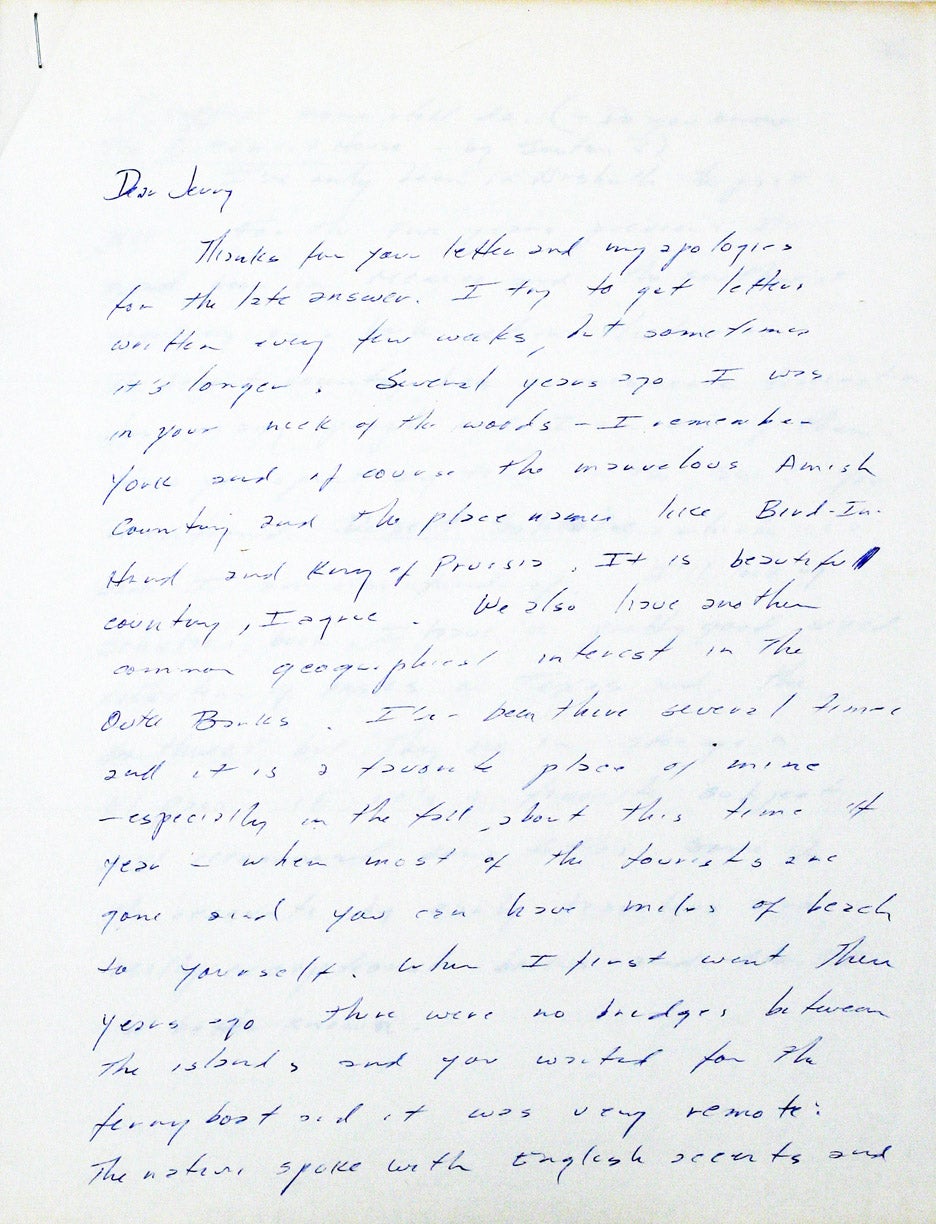 Dear Jerry
Thanks for your letter and my apologies
for the late answer. I try to get letters
written every few weeks, but sometimes
it's longer. Several years ago I was
in your neck of the woods - I remember
York and of course the marvelous Amish
Country and the place names like Bird-In-
Hand and King of Prussia. It is beautiful
country, I agree. We also have another
common geographical interest in the
Outer Banks. I've been there several times
and it is a favorite place of mine
- especially in the fall, about this time of
year - when most of the tourists are
gone and you can have miles of beach
to yourself. When I first went there
years ago there were no bridges between
the islands and you waited for the
ferryboat and it was very remote.
The natives spoke with English accents and